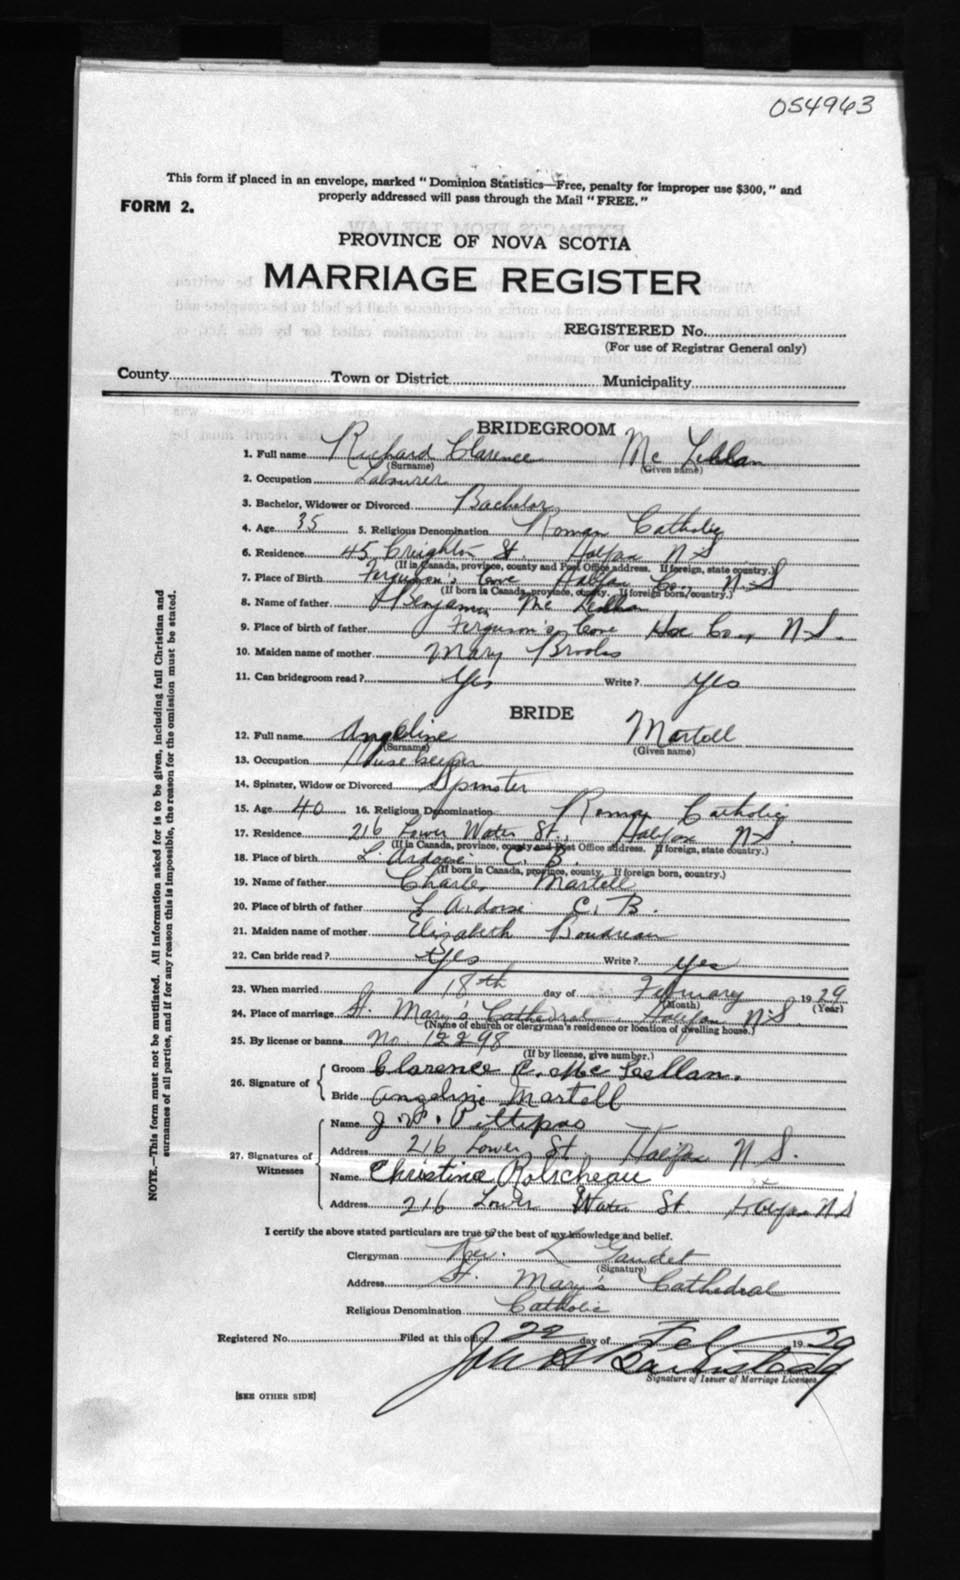 054963
This form if placed in an envelope, marked "Dominion Statistics—Free, penalty for improper use $300," and
properly addressed will pass through the Mail "FREE."
FORM 2.
PROVINCE OF NOVA SCOTIA
MARRIAGE REGISTER
REGISTERED No.
(For use of Registrar General only)
County Town or District Municipality
BRIDEGROOM
1. Full name Richard Clarence Mc Lellan
(Surname) (Given name)
2. Occupation Labourer
3. Bachelor, Widower or Divorced Bachelor
4. Age 35 5. Religious Denomination Roman Catholic
6. Residence 45 Creighton St. Halifax N S
(If in Canada, province, county and Post Office address. If foreign, state country.)
7. Place of Birth Ferguson's Cove Halifax Co. N-S
(If born in Canada, province, county. If foreign born, country.)
8. Name of father Benjamin Mc Lellan
9. Place of birth of father Ferguson's Cove Hx Co., N-S.
10. Maiden name of mother Mary Brooks
11. Can bridegroom read? Yes Write? Yes
BRIDE
12. Full name Angeline Martell
(Surname) (Given name)
13. Occupation Housekeeper
14. Spinster, Widow or Divorced Spinster
15. Age 40 16. Religious Denomination Roman Catholic
17. Residence 216 Lower Water St., Halifax N-S.
(If in Canada, province, county and Post Office address. If foreign, state country.)
18. Place of birth L. Ardoise C. B.
(If born in Canada, province, county. If foreign born, country.)
19. Name of father Charles Martell
20. Place of birth of father L Ardoise C. B.
21. Maiden name of mother Elizabeth Boudreau
22. Can bride read? Yes Write? Yes
23. When married 18th day of February 1929
(Month) (Year)
24. Place of marriage St. Mary's Cathedral. Halifax N-S.
(Name of church or clergyman's residence or location of dwelling house.)
25. By license or banns No. 12298
(If by license, give number.)
26. Signature of
Groom Clarence R. Mc Lellan.
Bride Angeline Martell
27. Signatures of Witnesses
Name J. Pettipas
Address 216 Lower St Halifax N S.
Name Christina
Address 216 Lower Water St. Halifax N S
I certify the above stated particulars are true to the best of my knowledge and belief.
Clergyman Rev. L Gaudet
(Signature)
Address St. Mary's Cathedral
Religious Denomination Catholic
Registered No. Filed at this office 22 day of Feb 1929
Signature of Issuer of Marriage Licenses
[SEE OTHER SIDE]
NOTE.—This form must not be mutilated. All information asked for is to be given, including full Christian and
surnames of all parties, and if for any reason this is impossible, the reason for the omission must be stated.